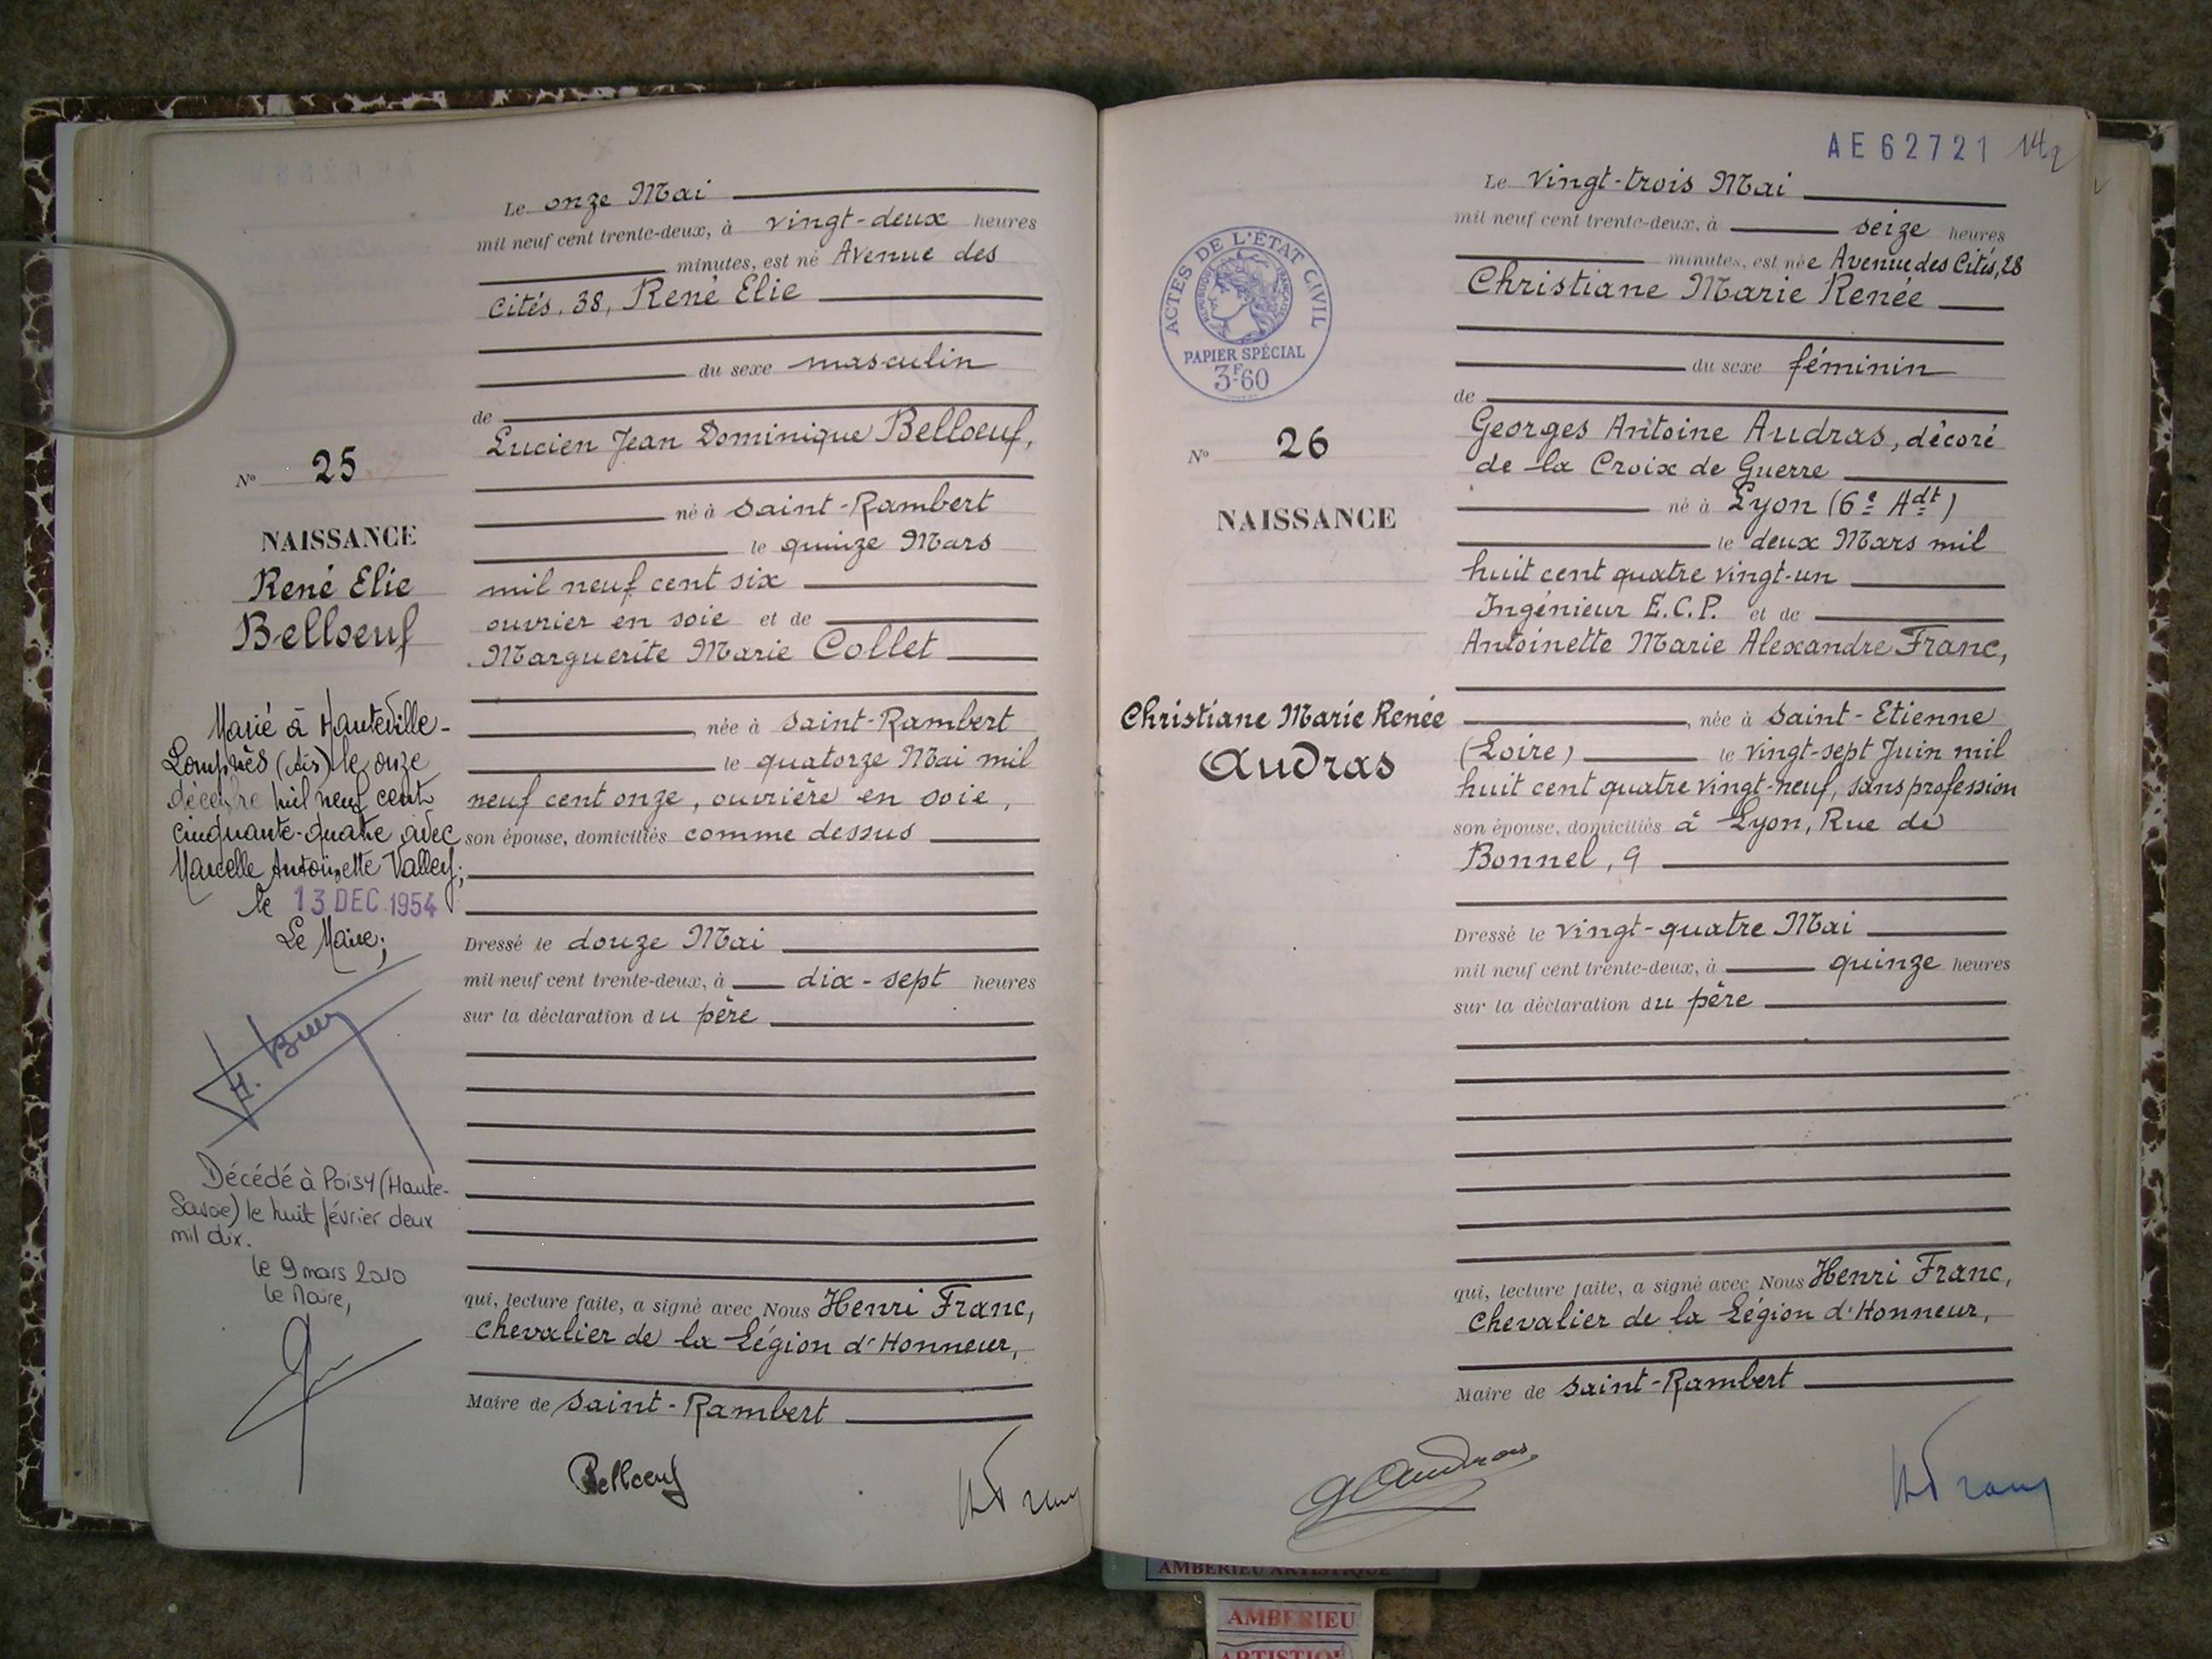 Le onze Mai
mil neuf cent trente-deux, à vingt-deux heures
minutes, est né Avenue des
Cités, 38, René Elie
du sexe masculin
de
Lucien Jean Dominique Belloeuf,
né à Saint-Rambert
le quinze Mars
mil neuf cent six
ouvrier en soie et de
Marguerite Marie Collet
, née à Saint-Rambert
le quatorze Mai mil
neuf cent onze, ouvrière en soie,
son épouse, domiciliés comme dessus
Dressé le douze Mai
mil neuf cent trente-deux, à dix-sept heures
sur la déclaration du père
qui, lecture faite, a signé avec Nous Henri Franc,
Chevalier de la Légion d'Honneur,
Maire de Saint-Rambert
Belloeuf
H Franc
N° 25
NAISSANCE
René Elie
Belloeuf
Marié à Hauteville-
Lompnès (Ain) le onze
décembre mil neuf cent
cinquante-quatre avec
Marcelle Antoinette Vallet;
le 13 DEC 1954
Le Maire;
Décédé à Poisy (Haute-
Savoie) le huit février deux
mil dix.
le 9 mars 2010
le Maire,
AE62721
Le vingt-trois Mai
mil neuf cent trente-deux, à seize heures
minutes, est née Avenue des Cités, 28
Christiane Marie Renée
du sexe féminin
de
Georges Antoine Audras, décoré
de la Croix de Guerre
né à Lyon (6e Adt)
le deux Mars mil
huit cent quatre vingt-un
Ingénieur E.C.P. et de
Antoinette Marie Alexandre Franc,
, née à Saint-Etienne
(Loire) le vingt-sept Juin mil
huit cent quatre vingt-neuf, sans profession
son épouse, domiciliés à Lyon, Rue de
Bonnel, 9
Dressé le vingt-quatre Mai
mil neuf cent trente-deux, à quinze heures
sur la déclaration du père
qui, lecture faite, a signé avec Nous Henri Franc,
Chevalier de la Légion d'Honneur,
Maire de Saint-Rambert
G Audras
H Franc
ACTES DE L'ÉTAT CIVIL
RÉPUBLIQUE FRANÇAISE
PAPIER SPÉCIAL
3F60
N° 26
NAISSANCE
Christiane Marie Renée
Audras
AMBERIEU ARTISTIQUE
AMBERIEU